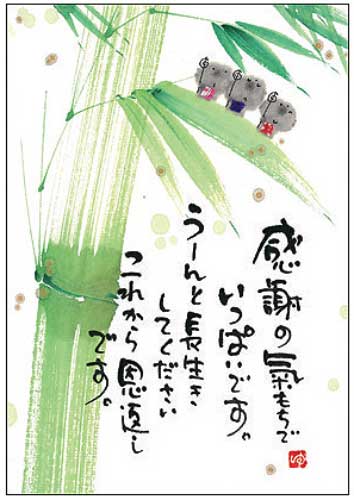 感謝の氣もちで
いっぱいです。
うーんと長生き
してください
これから恩返し
です。